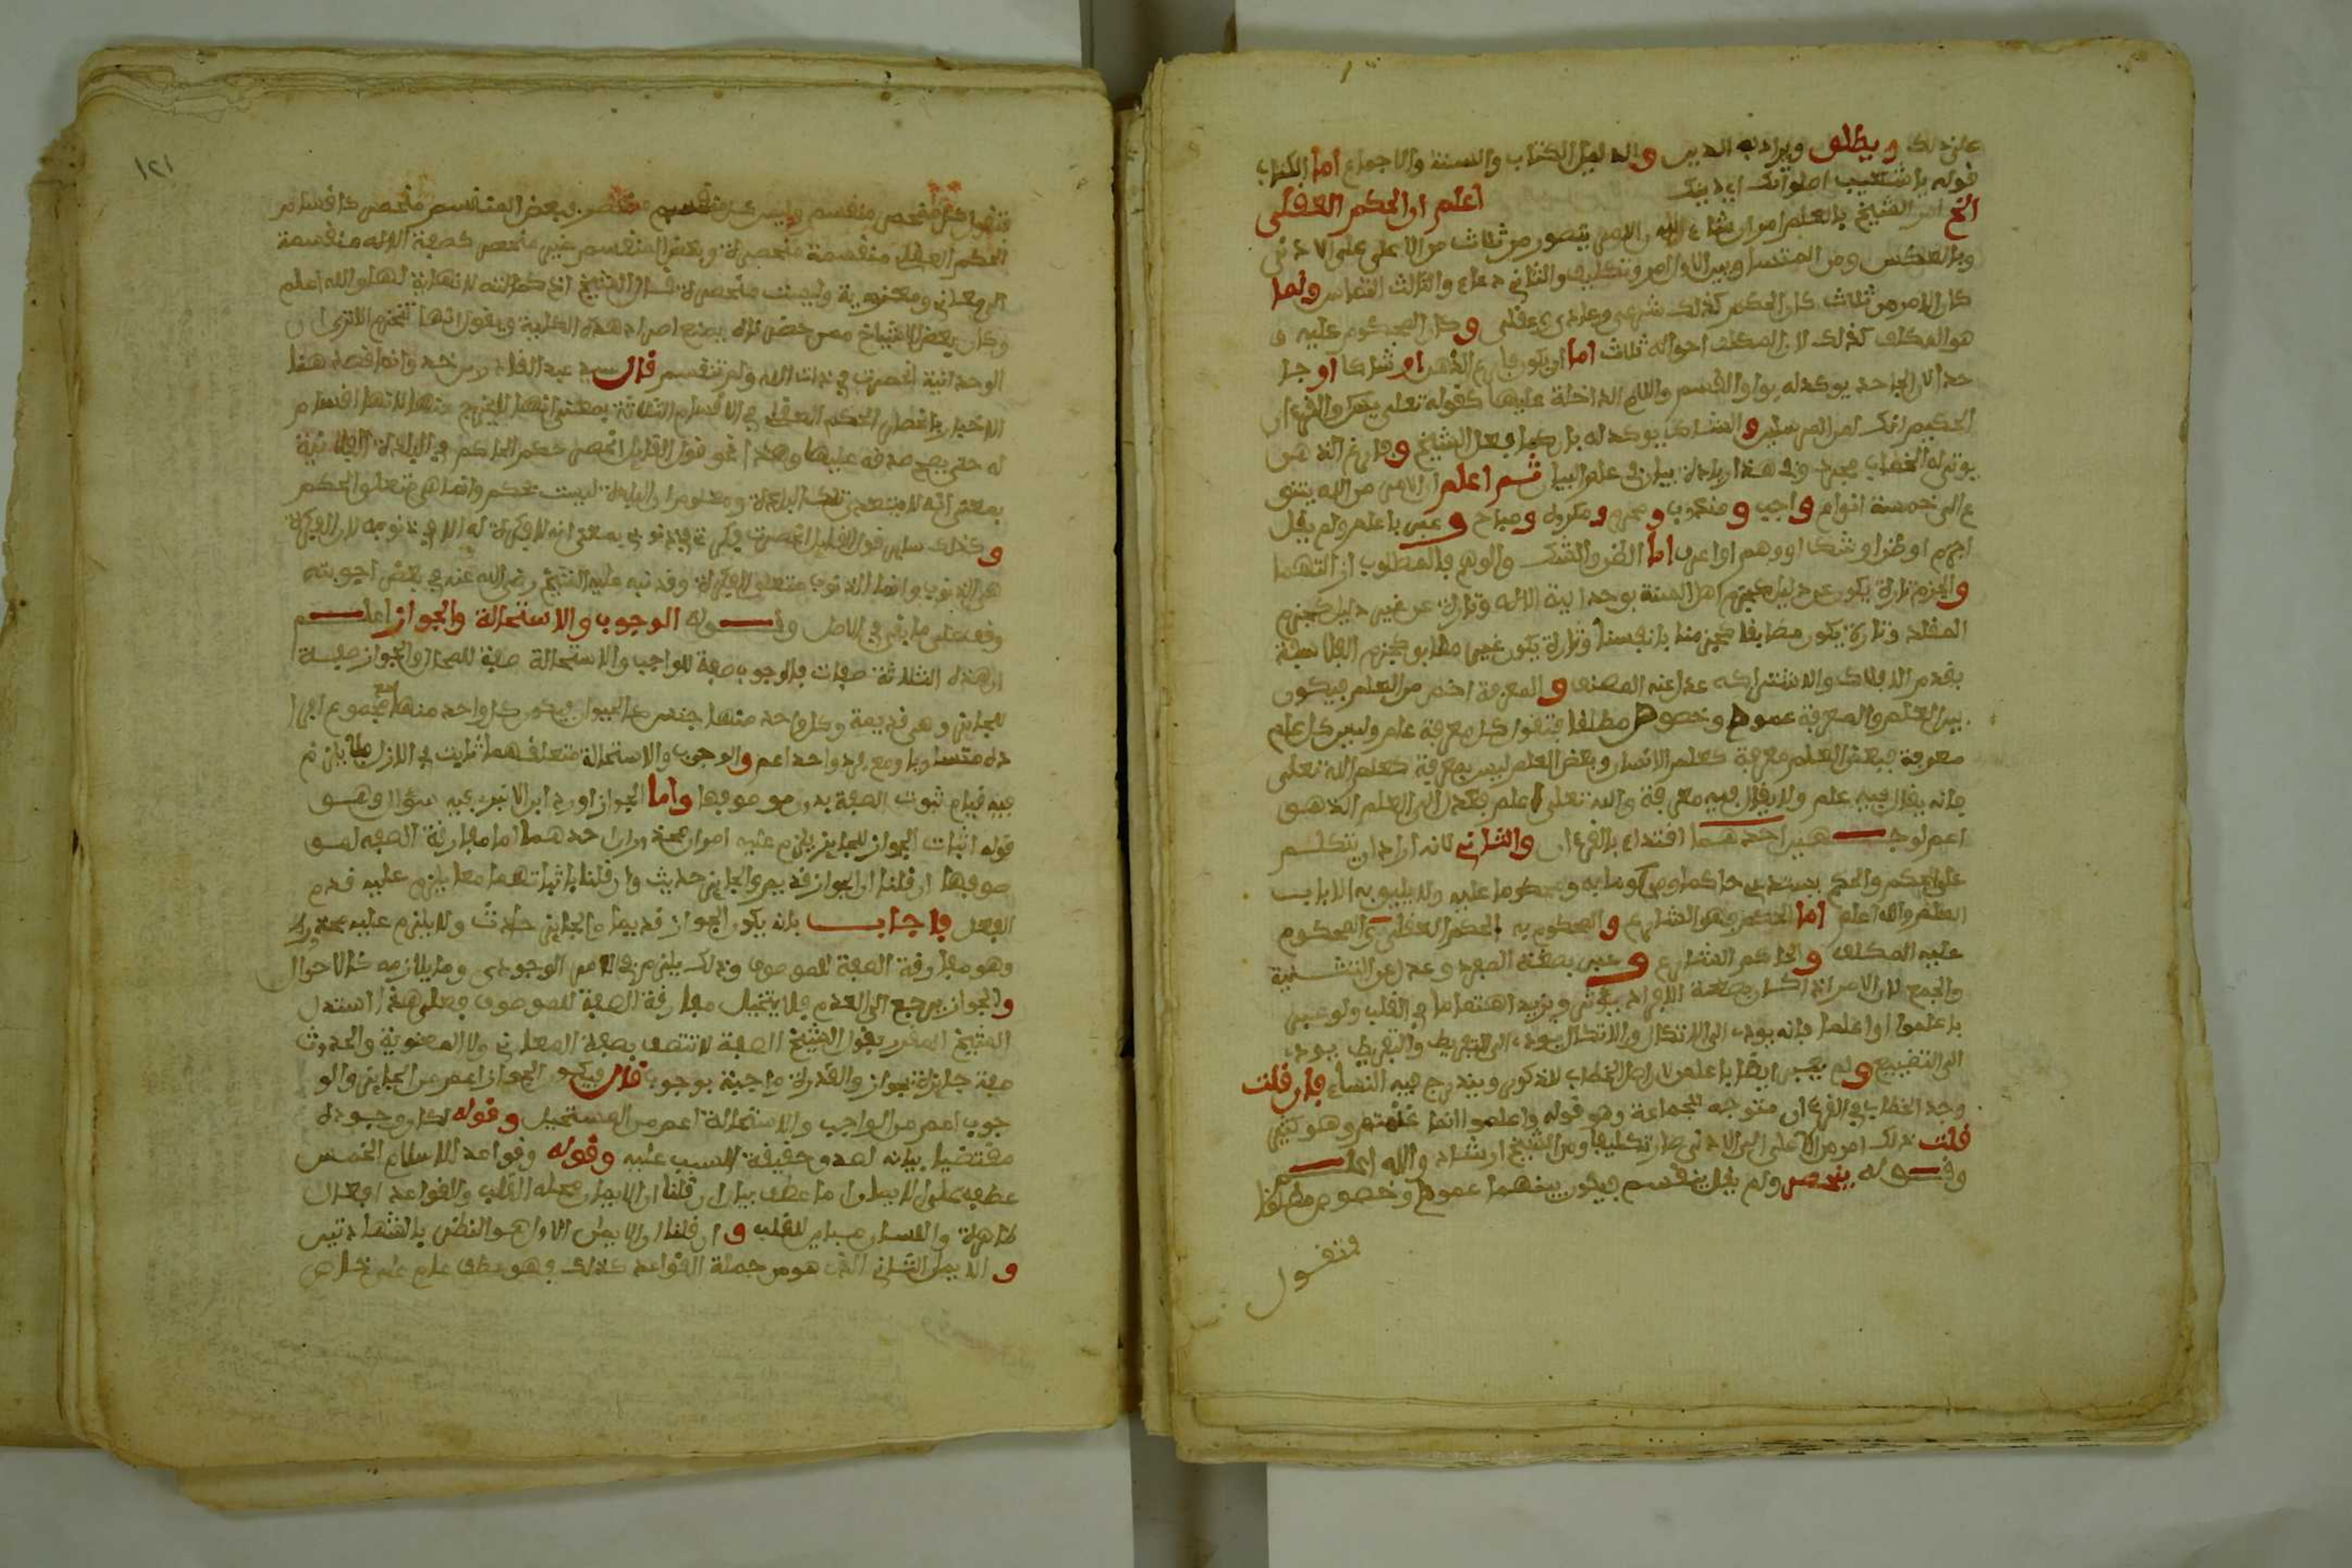 على ذلك ويطلق ويراد به الدين والدليل الكتاب والسنة والاجماع اما الكتاب
قوله يا شعيب اصلواتك اي دينك اعلم ان الحكم العقلي
الخ امر الشيخ بالعلم امر ارشاد والامر يتصور من ثلاث من الاعلى على الادنى
وبالعكس ومن المتساويين الاول امر وتكليف والثاني دعاء والثالث التماس ولما
كان الامر من ثلاث كان الحكم كذلك شرعي وعادي وعقلي وكان المحكوم عليه
هو المكلف كذلك لان المكلف احواله ثلاث اما ان يكون فارغ الذهن او شاكا او جا
حدا لان الجاحد يوكد له بواو القسم واللام الداخلة عليها كقوله تعلى يس والقرءان
الحكيم انك لمن المرسلين والشاك يوكد له بان كما فعل الشيخ وفارغ الذهن
يوتى له الخطاب مجرد وفي هذا زيادة بيان في علم البيان ثم اعلم ان الامر من الله يتنو
ع الى خمسة انواع واجب ومندوب ومحرم ومكروه ومباح وعبر باعلم ولم يقل
اجزم او ظن او شك او وهم او اعرف اما الظن والشك والوهم فالمطلوب انتهما
والجزم تارة يكون عن دليل كجزم اهل السنة بوحدانية الاله وتارة عن غير دليل كجزم
المقلد وتارة يكون مطابقا كجزمنا بانفسنا وتارة يكون غير مطابق كجزم الفلاسفة
بقدم الافلاك والاشتراكه عدا عنه المصنف والمعرفة اخص من العلم فيكون
بين العلم والمعرفة عموم وخصوص مطلقا فتقول كل معرفة علم وليس كل علم
معرفة فبعض العلم معرفة كعلم الانسان وبعض العلم ليس بمعرفة كعلم الله تعلى
فانه يقال فيه علم ولا يقال فيه معرفة والله تعلى اعلم فعدل الى العلم الذي هو
اعم لوجهين احدهما اقتداء بالقرءان والثاني لانه اراد ان يتكلم
على الحكم والحكم يستدعي حاكما ومحكوما به ومحكوما عليه ولا يليق به الا باب
العلم والله اعلم اما الحكم فهو الشارع والمحكوم به الحكم العقلي والمحكوم
عليه المكلف والحاكم الشارع وعبر بصفة المفرد وعدل عن التثنية
والجمع لان الامر اذا كان بصفة الافراد يؤثر ويزيد اهتماما في القلب ولو عبر
باعلموا او اعلما فانه يودي الى الاتكال والاتكال يودي الى التفريط والتفريط يودي
الى التضييع ولم يعبر ايضا باعلمن لان اصل الخطاب للذكور ويندرج فيه النساء فان قلت
وجد الخطاب في القرءان متوجه للجماعة وهو قوله واعلموا انما غنمتم وهو كثير
قلت ذلك امر من الاعلى الى الادنى صار تكليفا ومن الشيخ ارشاد والله اعلم
وقوله ينحصر ولم يقل ينقسم فيكون بينهما عموم وخصوص مطلقا
فتقول
١٢١
فتقول كل منحصر منقسم وليس كل منقسم منحصر فبعض المنقسم منحصر كاقسام
الحكم العقلي منقسمة منحصرة وبعض المنقسم غير منحصر كصفة الاله منقسمة
الى معاني ومعنوية وليست منحصرة قال الشيخ اذ كمالاته لا نهاية لها والله اعلم
وكان بعض الاشياخ ممن حضرناه يمنع اطراد هذه الكلية ويقول انها تنخرم الاترى ان
الوحدانية انحصرت في ذات الاله ولم تنقسم قال سيد عبد القادر بن خدة وانما قصد هنا
الاخبار بانحصار الحكم العقلي في الاقسام الثلاثة بمعنى انها لا يخرج عنها لا انها اقسام
له حتى يصح صدقه عليها وهذا نحو قول القايل انحصر حكم الحاكم في البلدة الفلانية
بمعنى انه لا يتعدى تلك البلدة ومعلوم ان البلدة ليست بحكم وانما هي متعلق الحكم
وكذلك ساير قول القايل انحصرت فكرتي في ذنوبي بمعنى انه لا فكرة له الا في ذنوبه لا ان الفكرة
هي الذنوب وانما الذنوب متعلق الفكرة وقد نبه عليه الشيخ رضي الله عنه في بعض اجوبته
وقف على ما بقي في الاصل وقوله الوجوب والاستحالة والجواز اعلم
ان هذه الثلاثة صفات فالوجوب صفة للواجب والاستحالة صفة للمحال والجواز صفة
للجايز وهي قديمة وكل واحد منها جنس كالحيوان فيكون كل واحد منها مع مجموع افرا
ده متساويا ومع فرد واحد اعم والوجوب والاستحالة متعلقهما ثابت في الازل فلا يلزم
فيه قيام ثبوت الصفة بدون موصوفها واما الجواز اورد ابن الاثير عليه سؤال وهو
قوله اثبات الجواز للجايز يلزم عليه امران محذوران احدهما اما مفارقة الصفة لمو
صوفها ان قلنا ان الجواز قديم والجايز حديث وان قلنا باثباتهما معا يلزم عليه قدم
الفعل فاجاب بانه يكون الجواز قديما والجايز حادث ولا يلزم عليه محذور
وهو مفارقة الصفة للموصوف وذلك يلزم في الامر الوجودي وما يلازمه كالاحوال
والجواز يرجع الى العدم فلا يتخيل مفارقة الصفة للموصوف فعلى هذا استدل
الشيخ المقرر بقول الشيخ الصفة لا تتصف بصفة المعاني ولا المعنوية والحدوث
صفة جايزة بجواز والقدرة واجبة بوجوب قال فيكون الجواز اعم من الجايز والو
جوب اعم من الواجب والاستحالة اعم من المستحيل وقوله لكان وجوده
مقتضيا بيانه لصدق حقيقة السبب عليه وقوله وقواعد الاسلام الخمس
عطف على الايمان اما عطف بيان ان قلنا ان الايمان محله القلب والقواعد افعال
ظاهرة واللسان مباين للقلب وان قلنا ان الايمان الاول هو النطق بالشهادتين
والايمان الثاني الذي هو من جملة القواعد كذلك فهو عطف عام على خاص